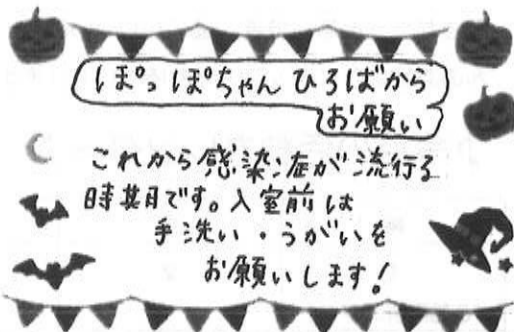 ぽっぽちゃんひろばから
お願い
これから感染症が流行る
時期です。入室前は
手洗い・うがいを
お願いします!